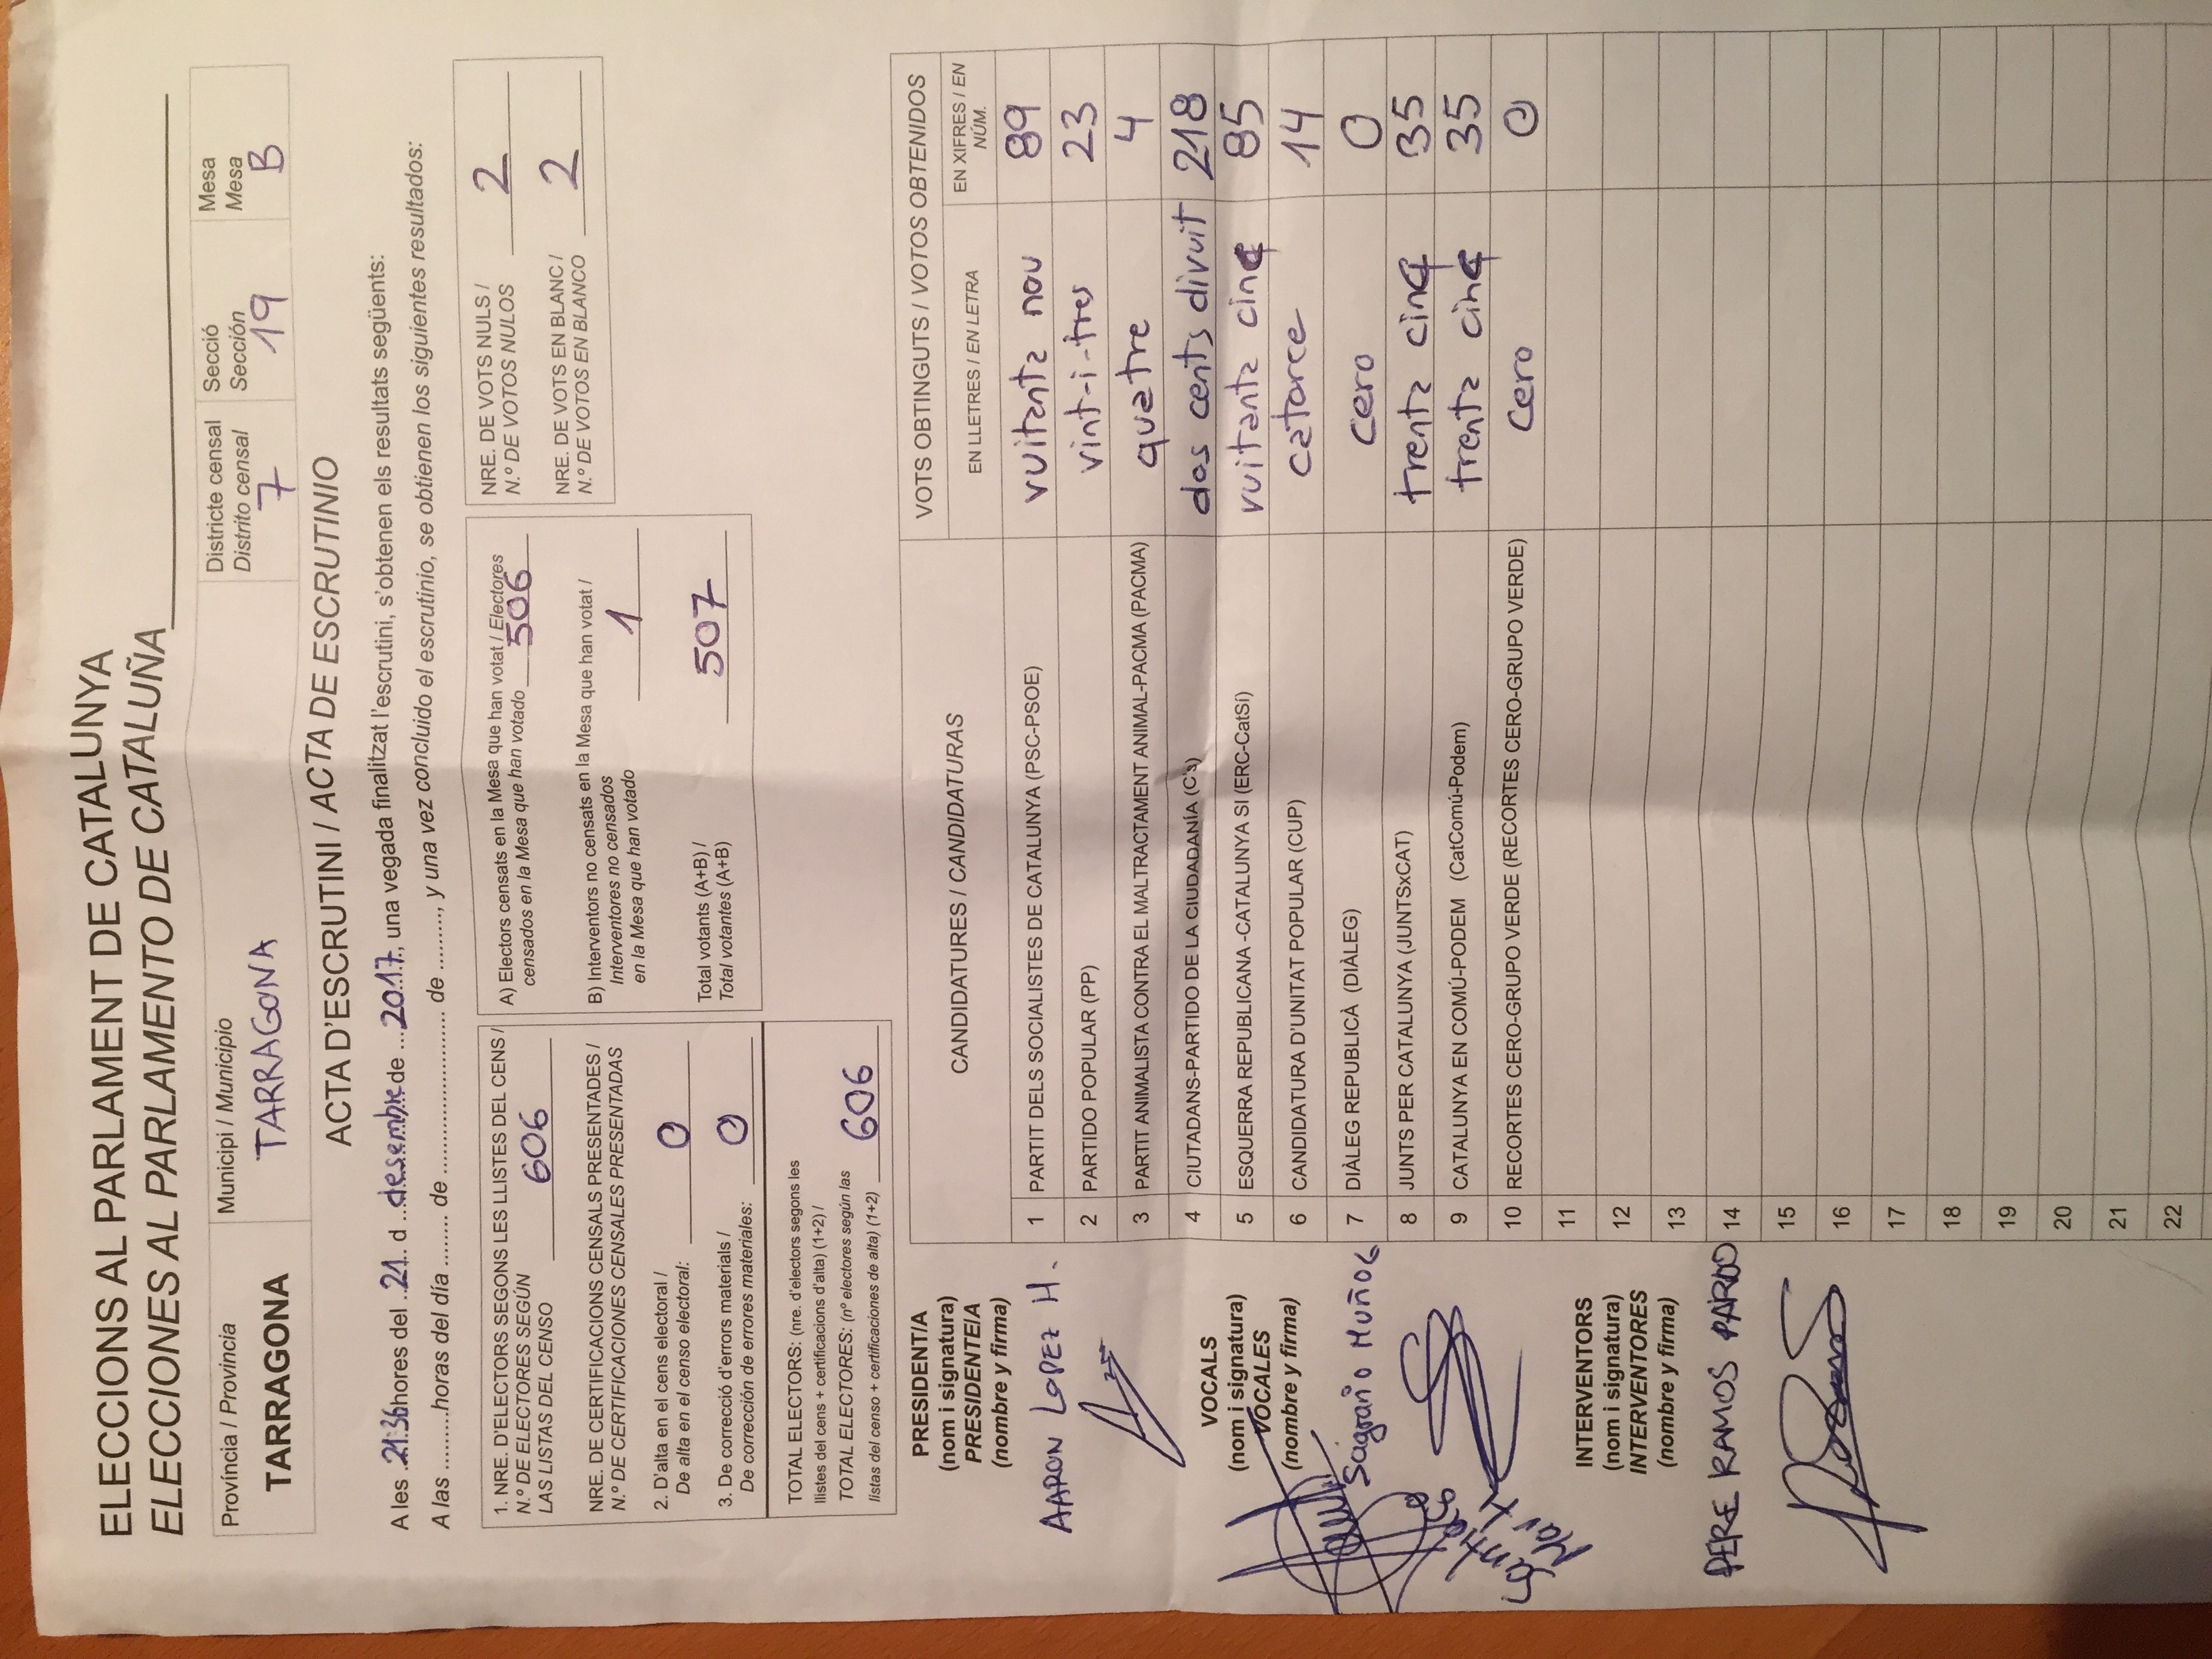 ELECCIONS AL PARLAMENT DE CATALUNYA
ELECCIONES AL PARLAMENTO DE CATALUÑA
Província / Provincia
TARRAGONA
Municipi / Municipio
TARRAGONA
Districte censal
Distrito censal
7
Secció
Sección
19
Mesa
Mesa
B
ACTA D'ESCRUTINI / ACTA DE ESCRUTINIO
A les 21:36 hores del 21 d desembre de 2017, una vegada finalitzat l'escrutini, s'obtenen els resultats següents:
A las .........horas del día ........ de ......................... de ........., y una vez concluido el escrutinio, se obtienen los siguientes resultados:
1. NRE. D'ELECTORS SEGONS LES LLISTES DEL CENS /
N.º DE ELECTORES SEGÚN
LAS LISTAS DEL CENSO 606
NRE. DE CERTIFICACIONS CENSALS PRESENTADES /
N.º DE CERTIFICACIONES CENSALES PRESENTADAS
2. D'alta en el cens electoral /
De alta en el censo electoral: 0
3. De correcció d'errors materials /
De corrección de errores materiales: 0
TOTAL ELECTORS: (nre. d'electors segons les
llistes del cens + certificacions d'alta) (1+2) /
TOTAL ELECTORES: (nº electores según las
listas del censo + certificaciones de alta) (1+2) 606
A) Electors censats en la Mesa que han votat / Electores
censados en la Mesa que han votado 506
B) Interventors no censats en la Mesa que han votat /
Interventores no censados
en la Mesa que han votado 1
Total votants (A+B) /
Total votantes (A+B) 507
NRE. DE VOTS NULS /
N.º DE VOTOS NULOS 2
NRE. DE VOTS EN BLANC /
N.º DE VOTOS EN BLANCO 2
PRESIDENT/A
(nom i signatura)
PRESIDENTE/A
(nombre y firma)
AARON LOPEZ H.
VOCALS
(nom i signatura)
VOCALES
(nombre y firma)
Sagrario Muñoz
Santiago
Marti
INTERVENTORS
(nom i signatura)
INTERVENTORES
(nombre y firma)
PERE RAMOS PARDO
CANDIDATURES / CANDIDATURAS
VOTS OBTINGUTS / VOTOS OBTENIDOS
EN LLETRES / EN LETRA
EN XIFRES / EN
NÚM.
1 PARTIT DELS SOCIALISTES DE CATALUNYA (PSC-PSOE) vuitanta nou 89
2 PARTIDO POPULAR (PP) vint-i-tres 23
3 PARTIT ANIMALISTA CONTRA EL MALTRACTAMENT ANIMAL-PACMA (PACMA) quatre 4
4 CIUTADANS-PARTIDO DE LA CIUDADANÍA (C's) dos cents divuit 218
5 ESQUERRA REPUBLICANA -CATALUNYA SI (ERC-CatSí) vuitanta cinq 85
6 CANDIDATURA D'UNITAT POPULAR (CUP) catorce 14
7 DIÀLEG REPUBLICÀ (DIÀLEG) cero 0
8 JUNTS PER CATALUNYA (JUNTSxCAT) trenta cinq 35
9 CATALUNYA EN COMÚ-PODEM (CatComú-Podem) trenta cinq 35
10 RECORTES CERO-GRUPO VERDE (RECORTES CERO-GRUPO VERDE) cero 0
11
12
13
14
15
16
17
18
19
20
21
22